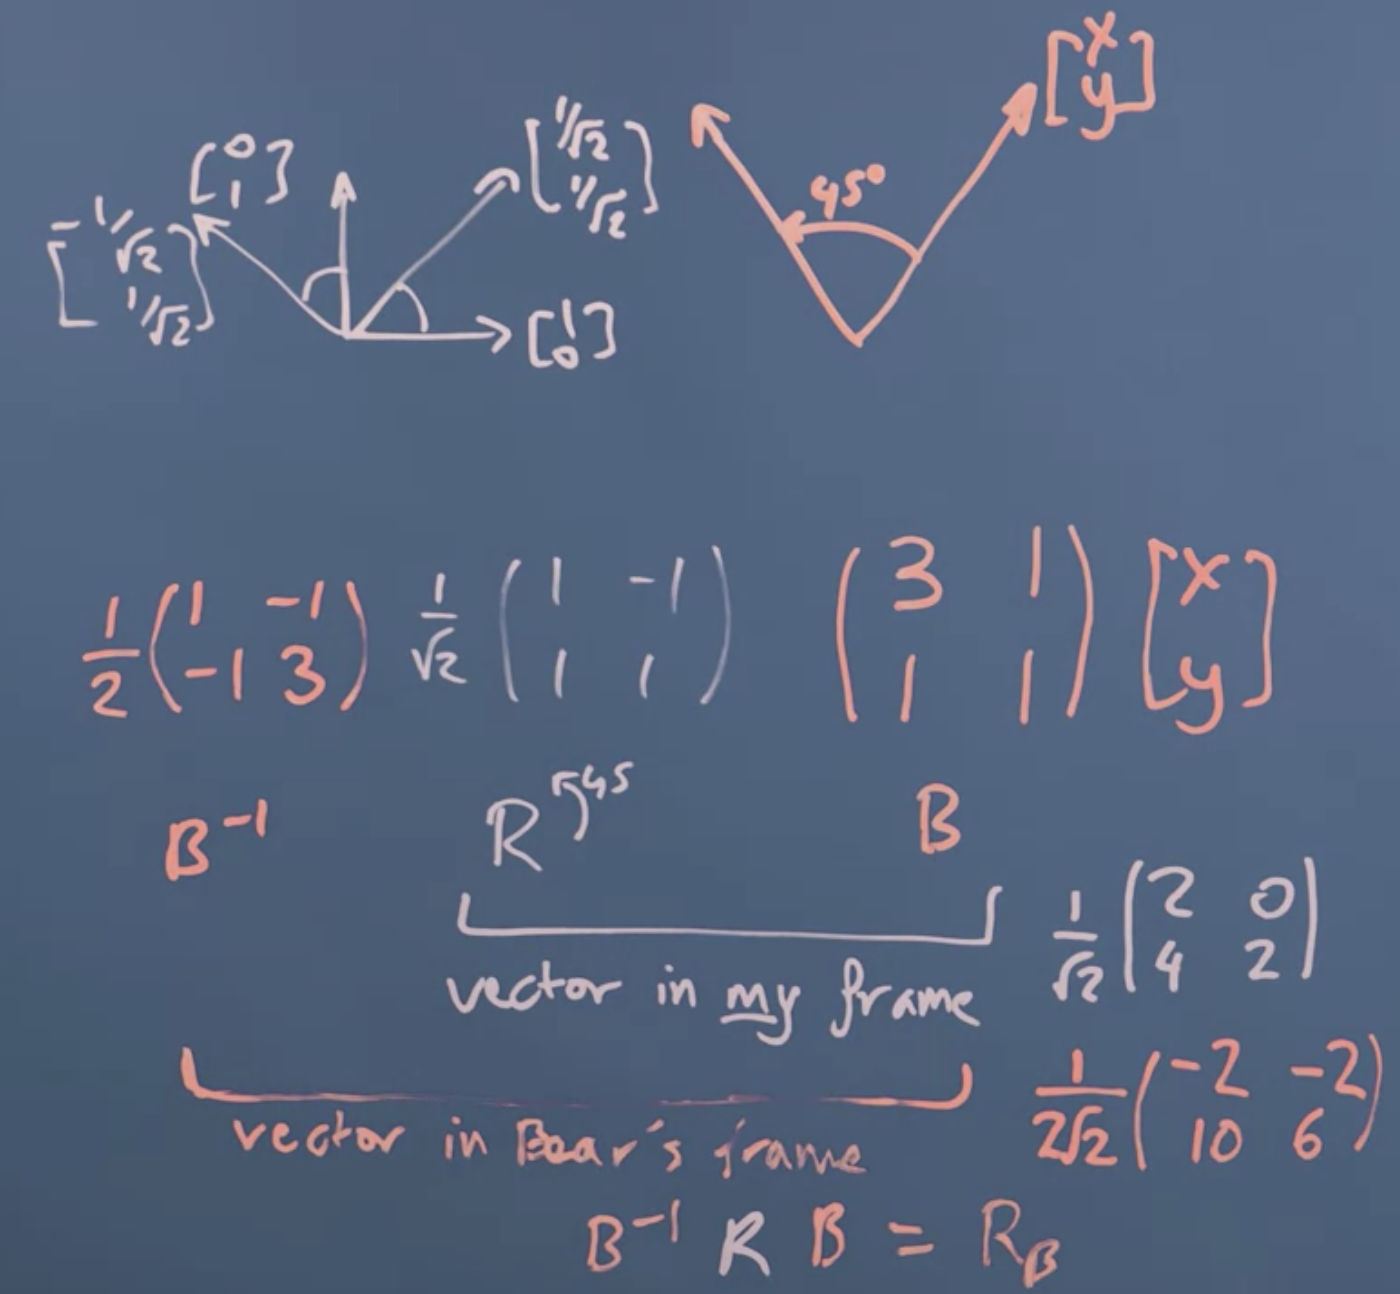 [x y]
[0 1] [1/√2 1/√2] 45°
[-1/√2 1/√2] [1 0]
1/2 (1 -1 -1 3) 1/√2 (1 -1 1 1) (3 1 1 1) [x y]
B⁻¹ R 45 B
vector in my frame 1/√2 (2 0 4 2)
vector in Bear's frame 1/2√2 (-2 -2 10 6)
B⁻¹ R B = R_B